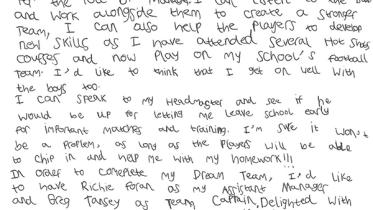 for the role of manager. I can listen to the
and work alongside them to create a stronger
team, I can also help the players to develop
new skills as I have attended several Hot Shots
courses and now play on my school's football
team. I'd like to think that I get on well with
the boys too.
I can speak to my Headmaster and see if he
would be up for letting me leave school early
for important matches and training. I'm sure it won't
be a problem, as long as the players will be able
to chip in and help me with my homework!!!
In order to complete my Dream Team, I'd like
to have Richie Foran as my Assistant Manager
and Greg Tansey as Team Captain, Delighted with